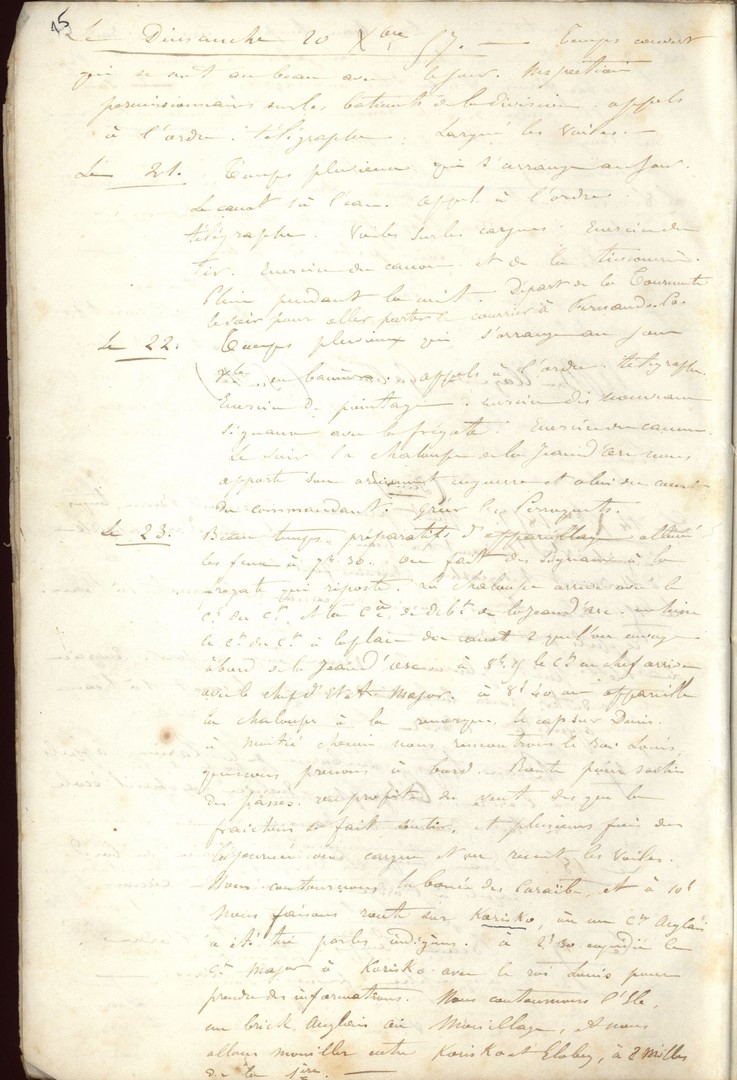 45
Le Dimanche 20 Xbre 57. — temps couvert
qui se met au beau avec le jour. Inspection
permissionnaires sur les batiments de la division. appels
à l'ordre. télégraphe. Largué les voiles. —
Le 21. Temps pluvieux qui s'arrange au jour.
Le canot à l'eau. appel à l'ordre
télégraphe. Voiles sur les cargues. Exercice du
Exercice du canon et de la
Pluie pendant la nuit. Départ de la Tourmente
le soir pour aller porter le courrier à Fernando-Po
Le 22. Temps pluvieux qui s'arrange au jour
en bannière. appels à l'ordre. télégraphe.
Exercice de pointage. exercice des nouveaux
signaux avec la frégate. Exercice du canon.
Le soir la chaloupe de la Jeanne d'Arc nous
apporte son armement en guerre et celui du canot
du commandant. Gréé les Perroquets.
Le 23. Beau temps. préparatifs d'appareillage allumé
les feux à 7h 30. on fait des signaux à la
frégate qui riposte. La chaloupe arrive avec le
ct. du ct. et la cie de debt de la Jeanne d'Arc. on hisse
le ct du ct à la place du canot 2 que l'on envoye
à bord de la Jeanne d'Arc à 8h. le ct en chef arrive
avec le chef d'Etat Major. à 8h 40 on appareille
la chaloupe à la remorque, le cap sur Denis.
à moitié chemin nous rencontrons le roi Louis,
que nous prenons à bord. Route pour sortir
des passes. on profite du vent des que la
fraicheur se fait sentir, et plusieurs fois dans
la journée on cargue et on remet les voiles.
Nous contournons la bouée des Caraïbe, et à 10h
nous faisons route sur Korisko, où un Cne Anglais
a été tué par les indigènes. à 2h 30 expédié le
Ct Major à Korisko avec le roi Louis pour
prendre des informations. Nous contournons l'Ile,
un brick Anglais au Mouillage, et nous
allons mouiller entre Korisko et Elobey, à 2 milles
de la 1ère. —